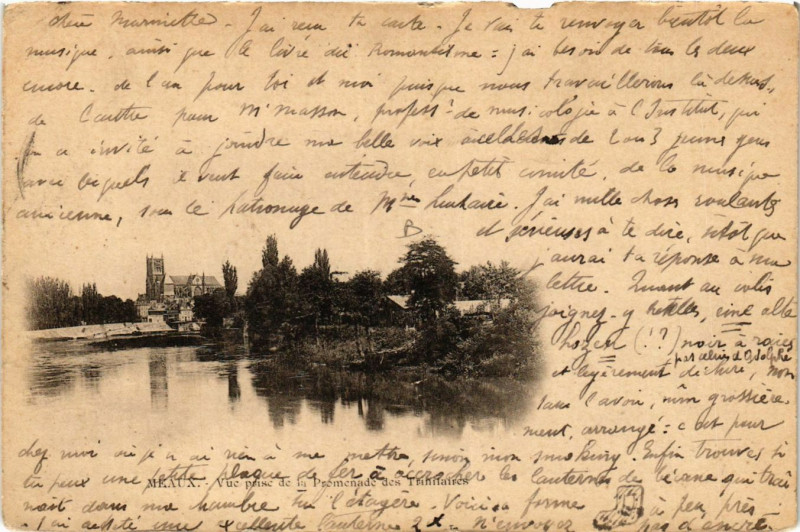 chère Marinette. J'ai reçu ta carte. Je vais te renvoyer bientôt la
musique, ainsi que le livre du Romantisme = j'ai besoin de tous les deux
encore. de l'un pour toi et moi puisque nous travaillerons là dessus,
de l'autre pour Mr Masson, profess! de musicologie à l'Institut, qui
m'a invité à joindre ma belle voix à celles de 2 ou 3 jeunes gens
avec lesquels il veut faire entendre, en petit comité, de la musique
ancienne, sous le patronage de Mme. J'ai mille choses roulantes
et sérieuses à te dire, sitôt que
j'aurai ta réponse à ma
lettre. Quant au colis
joignez-y, une
(!?) noir à raies
par celui d'Adolphe
et légèrement déchiré, non
sans l'avoir, même grossière
ment, arrangé = c'est pour
chez moi où je n'ai rien à me mettre, sinon mon. Enfin trouves si
tu peux une petite plaque de fer à accrocher les lanternes de bécane qui traî
MEAUX. - Vue prise de la Promenade des Trinitaires
nait dans ma chambre sur l'étagère. Voici sa forme à peu près
J'ai acheté une excellente lanterne. N'envoyez pas